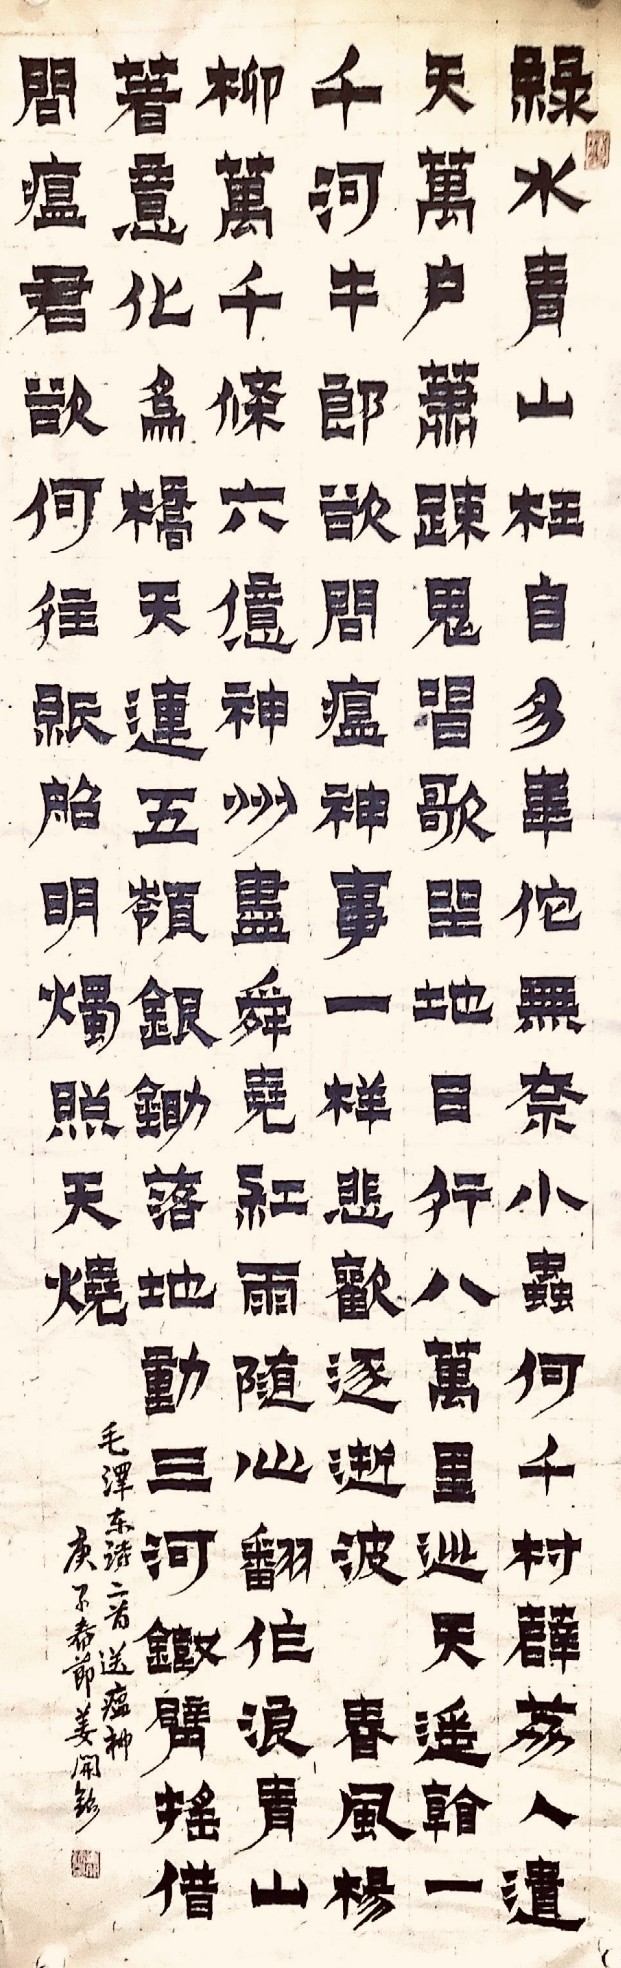 綠水青山枉自多華佗無奈小蟲何千村薜荔人遺
矢萬户蕭踈鬼唱歌坐地日行八萬里巡天遥看一
千河牛郎欲問瘟神事一样悲歡逐逝波春風楊
柳萬千條六億神州盡舜堯紅雨随心翻作浪青山
著意化為橋天連五嶺銀鋤落地動三河鐵臂摇借
問瘟君欲何往紙船明燭照天燒
毛澤东詩二首送瘟神
庚子春節姜開